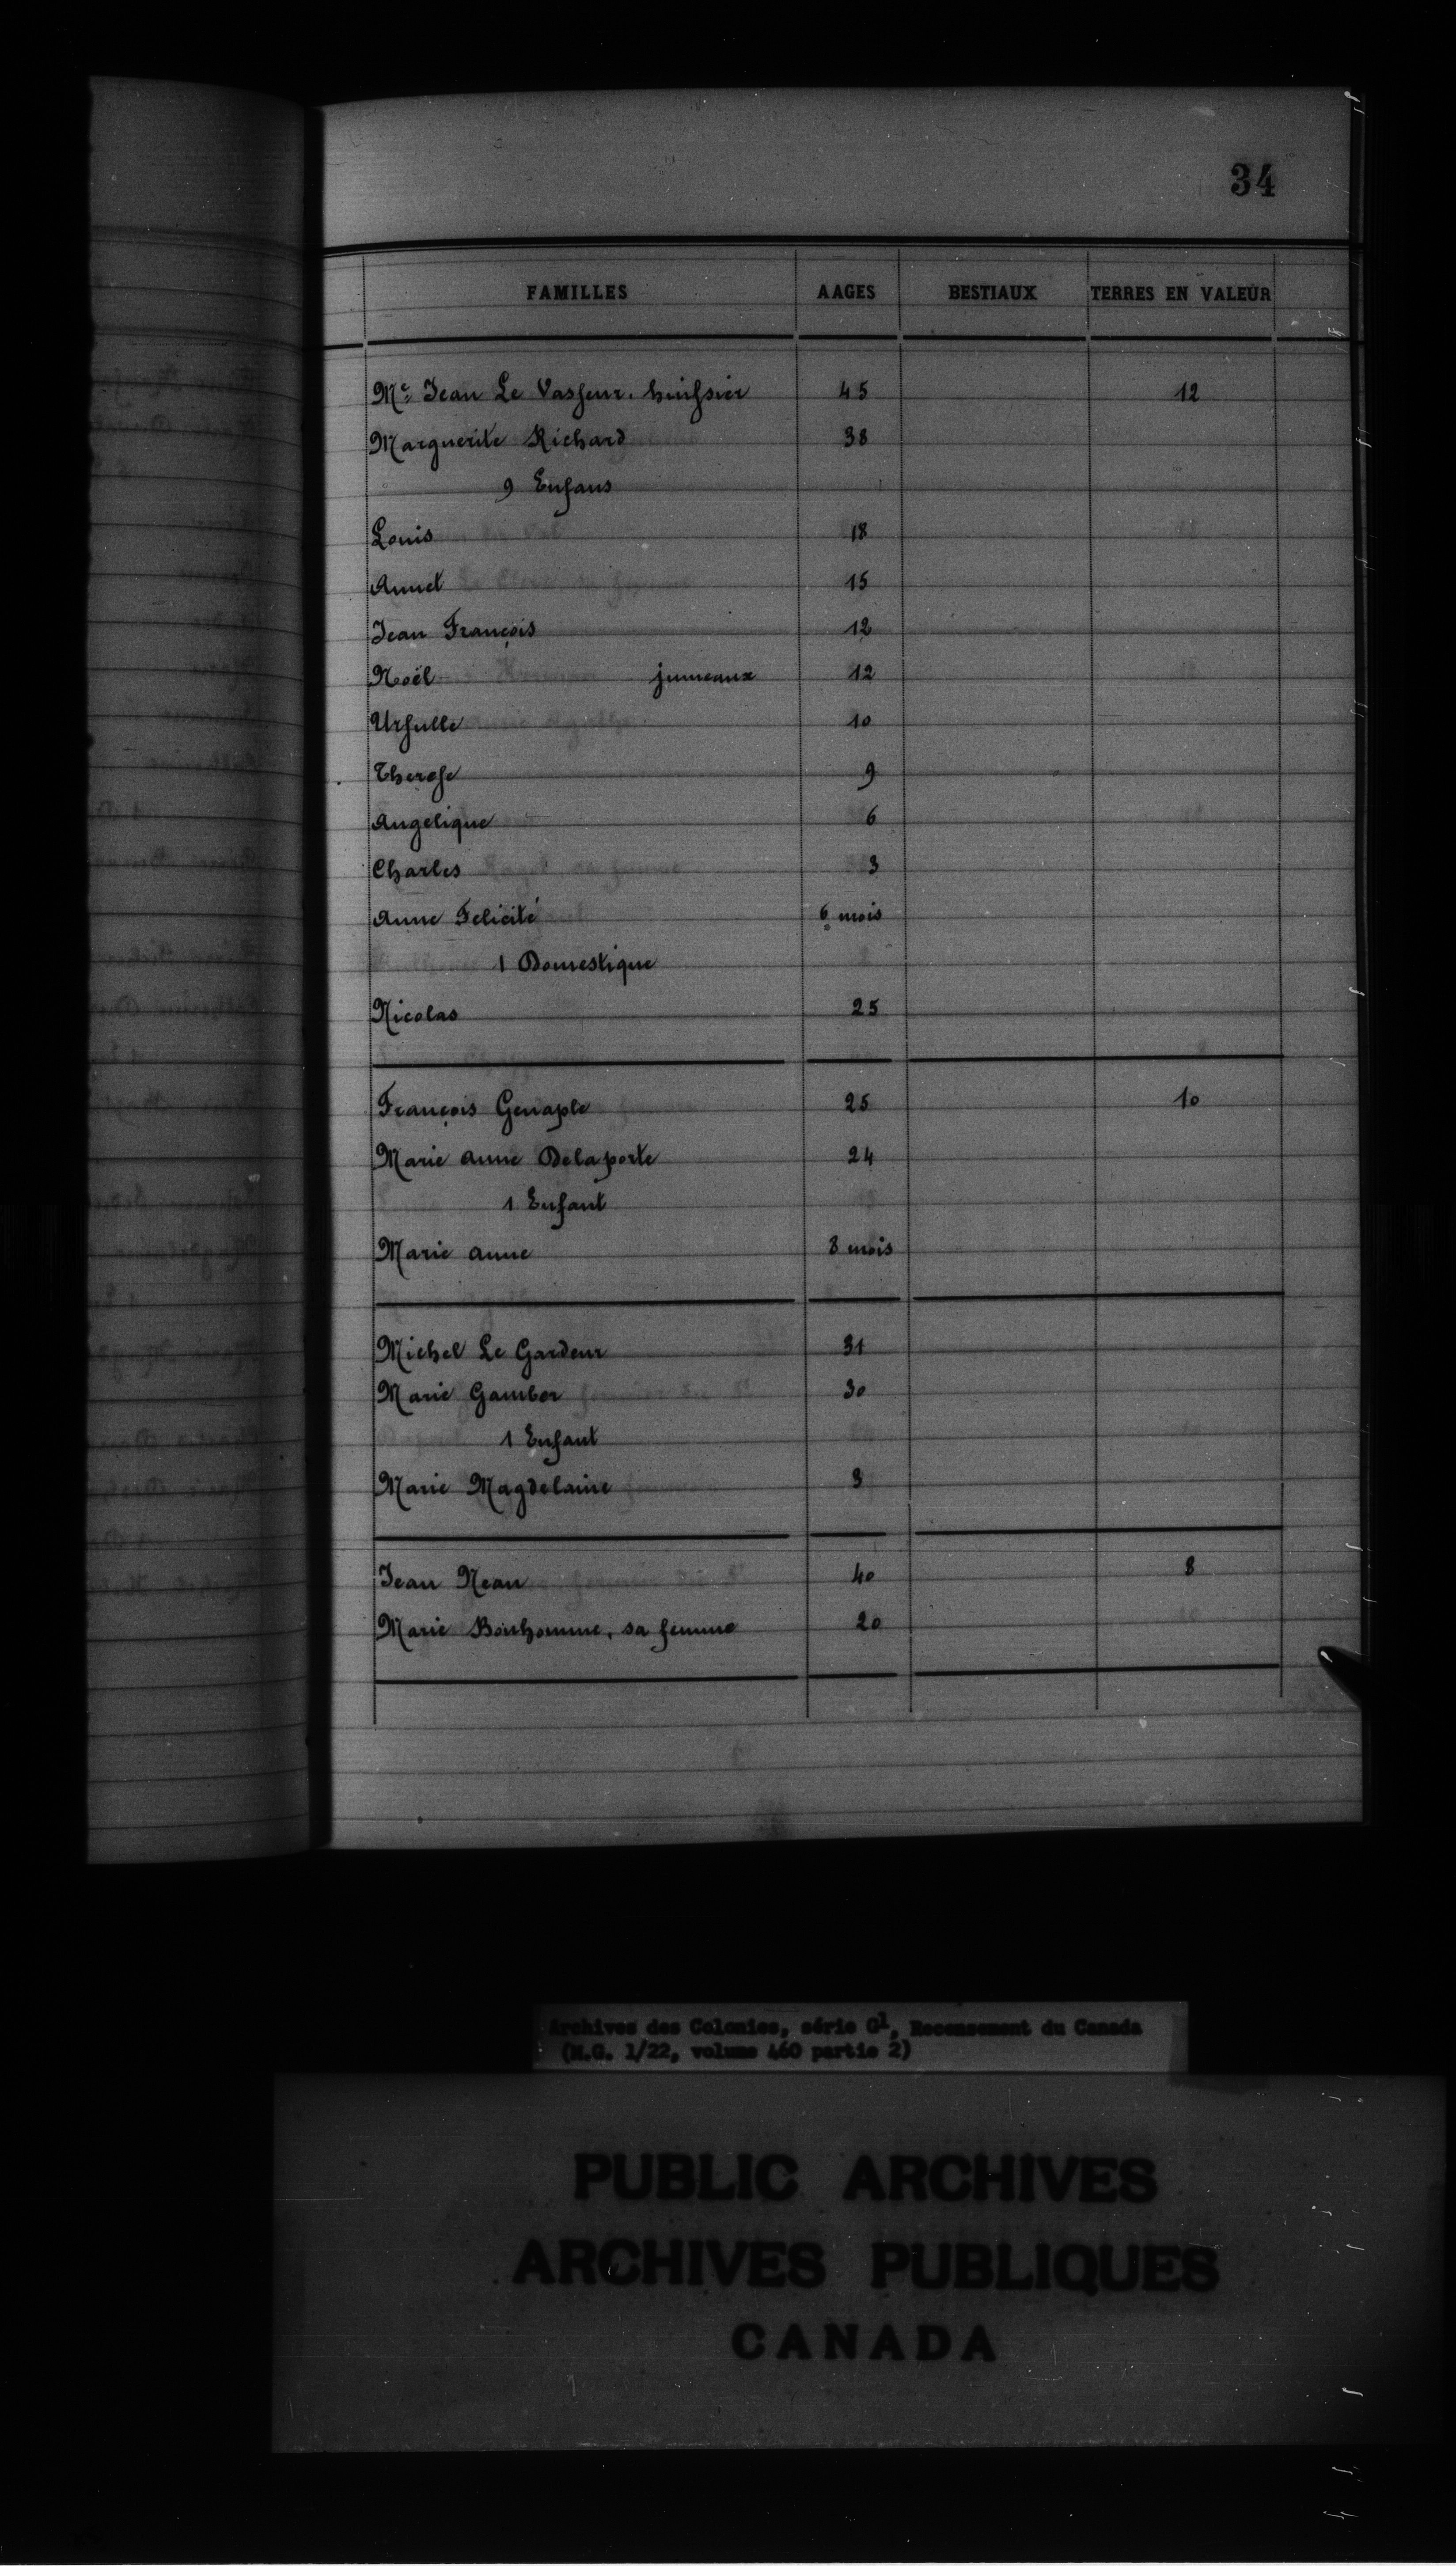 34
FAMILLES AAGES BESTIAUX TERRES EN VALEUR
Me Jean Le Vasseur, huissier 45 12
Marguerite Richard 38
9 Enfans
Louis 18
Annet 15
Jean François 12
Noël jumeaux 12
Ursulle 10
Therese 9
Angelique 6
Charles 3
Anne Felicité 6 mois
1 Domestique
Nicolas 25
François Genaple 25 10
Marie Anne Delaporte 24
1 Enfant
Marie Anne 8 mois
Michel Le Gardeur 31
Marie Gamber 30
1 Enfant
Marie Magdelaine 3
Jean Neau 40 8
Marie Bonhomme, sa femme 20
Archives des Colonies, série G1, Recensement du Canada
(M.G. 1/22, volume 460 partie 2)
PUBLIC ARCHIVES
ARCHIVES PUBLIQUES
CANADA